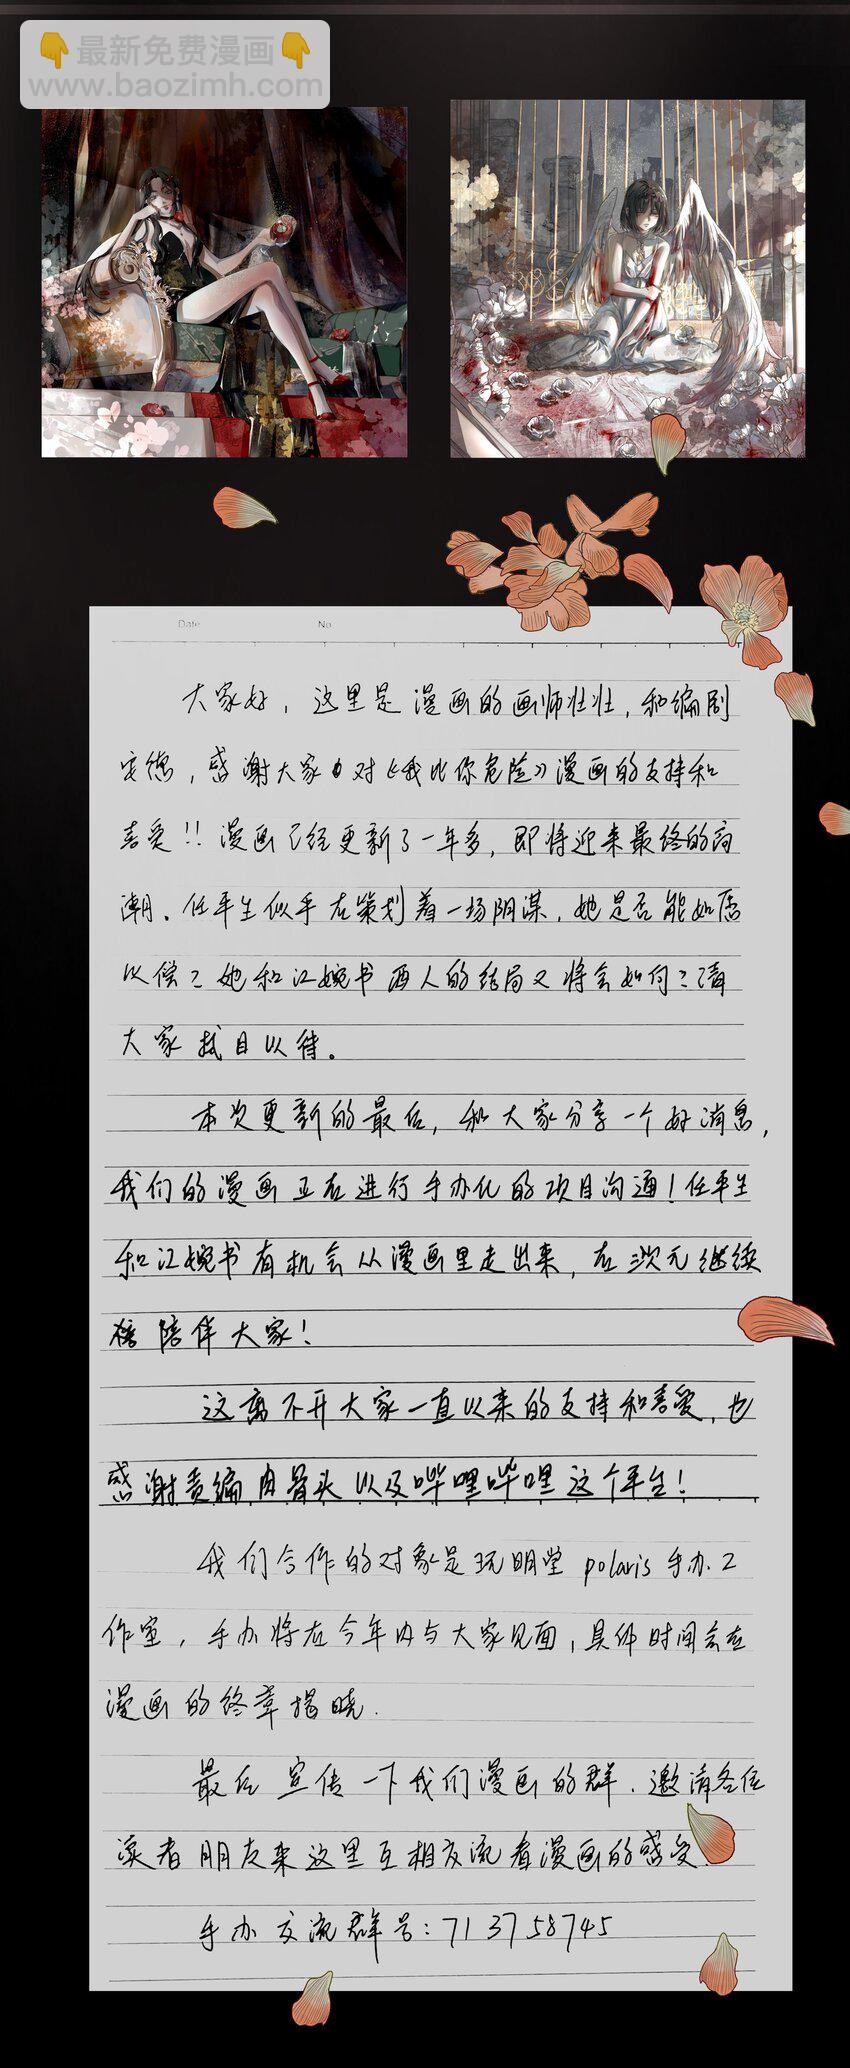 👇最新免费漫画👇
www.baozimh.com
Date
No
大家好，这里是漫画的画师壮壮，和编剧
安德，感谢大家对《我比你危险》漫画的支持和
喜爱!! 漫画已经更新了一年多，即将迎来最终的高
潮。任平生似乎在策划着一场阴谋，她是否能如愿
以偿？她和江婉书两人的结局又将会如何？请
大家拭目以待。
本次更新的最后，和大家分享一个好消息，
我们的漫画正在进行手办化的项目沟通！任平生
和江婉书有机会从漫画里走出来，在三次元继续
陪伴大家！
这离不开大家一直以来的支持和喜爱，也
感谢责编肉骨头以及哔哩哔哩这个平台！
我们合作的对象是玩明堂 polaris 手办工
作室，手办将在今年内与大家见面，具体时间会在
漫画的终章揭晓.
最后 宣传一下我们漫画的群．邀请各位
读者朋友来这里互相交流看漫画的感受.
手办交流群号：713758745